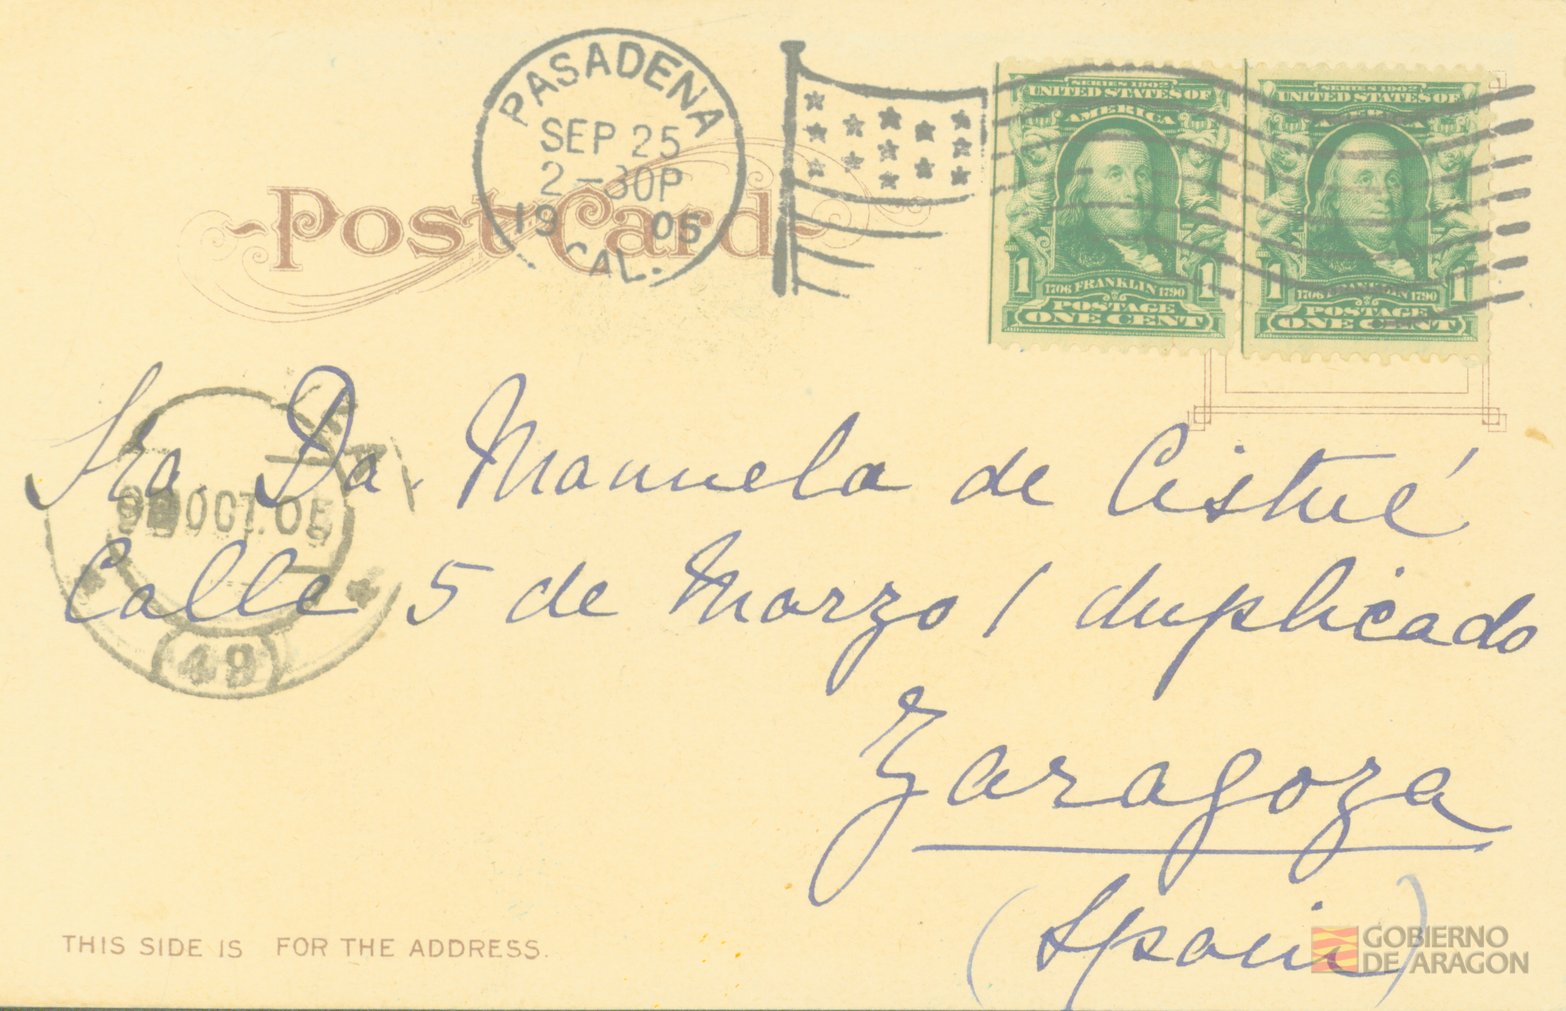 PASADENA
SEP 25
2-30P
1905
CAL.
Post Card
SERIES 1902
UNITED STATES OF
AMERICA
1 1
1706 FRANKLIN 1790
POSTAGE
ONE CENT
SERIES 1902
UNITED STATES OF
AMERICA
1 1
1706 FRANKLIN 1790
POSTAGE
ONE CENT
Sra Da. Manuela de Cistué
OCT. 05
Calle 5 de Marzo 1 duplicado
(49)
Zaragoza
(Spain)
THIS SIDE IS FOR THE ADDRESS.
GOBIERNO
DE ARAGON